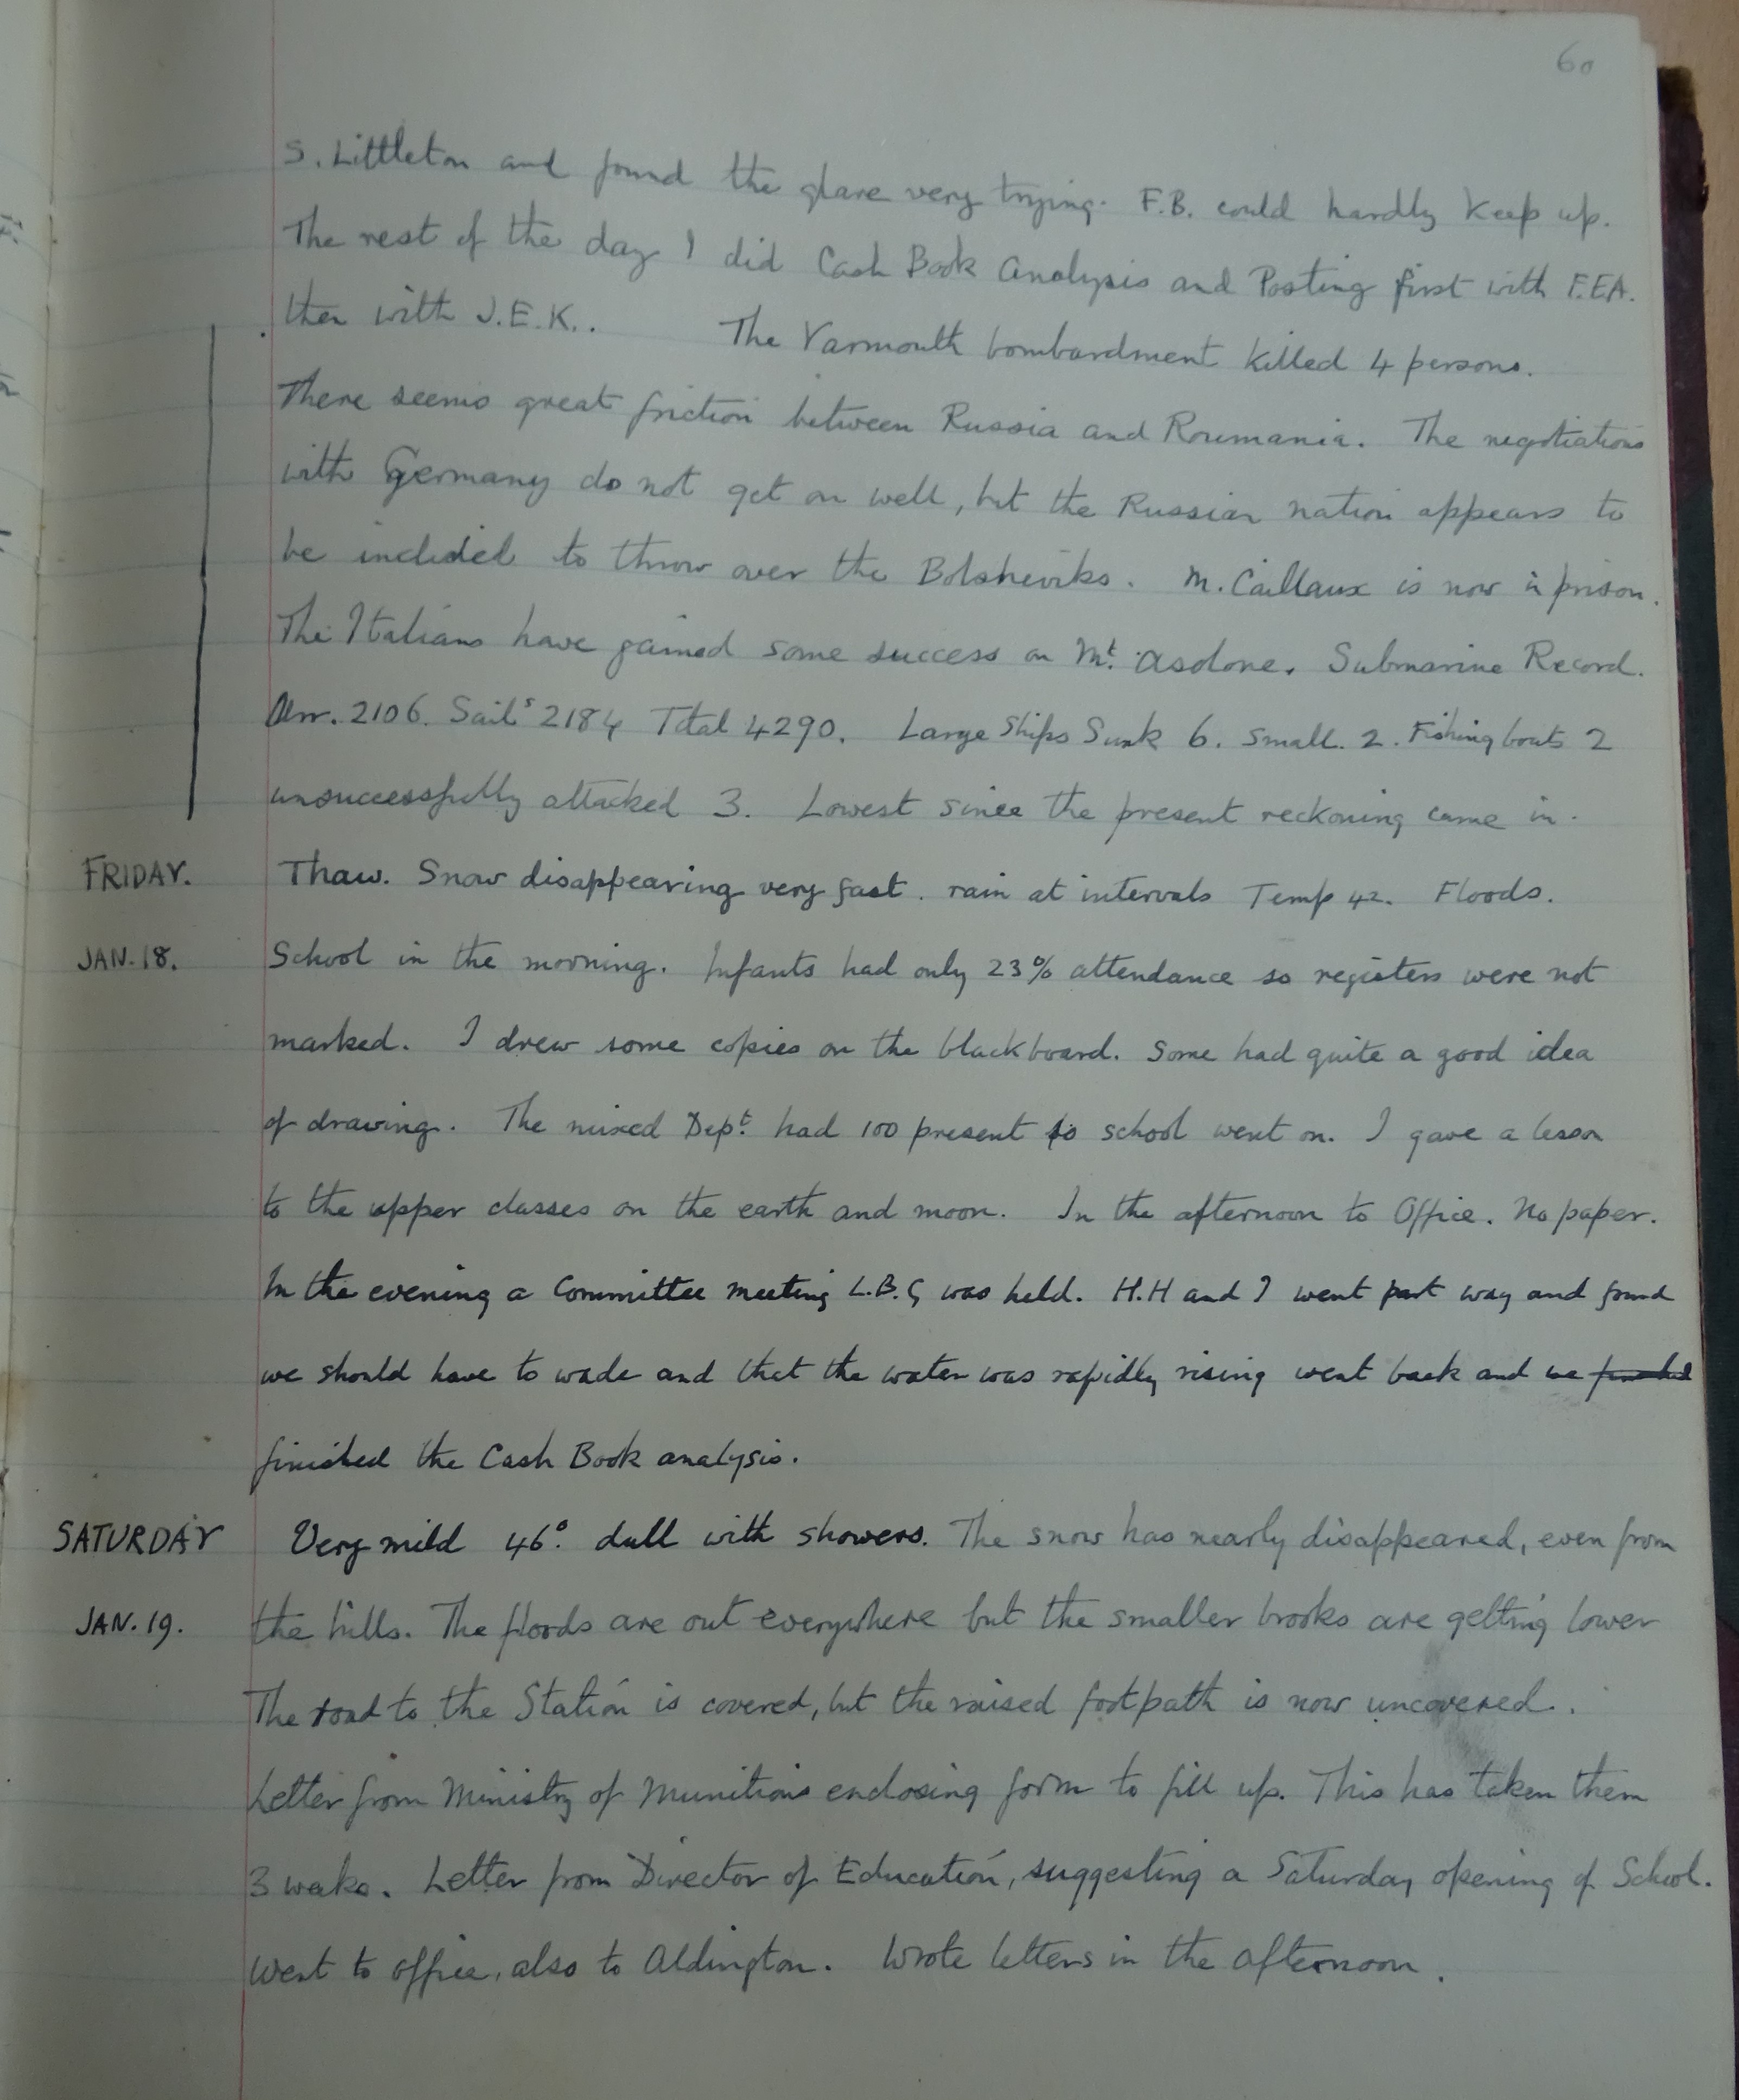 60
S. Littleton and found the glare very trying. F.B. could hardly keep up.
The rest of the day I did Cash Book Analysis and Posting first with F.E.A.
then with J.E.K.. The Yarmouth bombardment killed 4 persons.
There seems great friction between Russia and Roumania. The negotiations
with Germany do not get on well, but the Russian nation appears to
be to throw over the Bolsheviks. M. Caillaux is now in prison.
The Italians have gained some success on Mt. Asolone. Submarine Record.
Arr. 2106. Sails 2184 Total 4290. Large Ships Sunk 6. Small. 2. Fishing boats 2
unsuccessfully attacked 3. Lowest since the present reckoning came in.
FRIDAY. Thaw. Snow disappearing very fast. rain at intervals Temp 42. Floods.
JAN. 18. School in the morning. Infants had only 23% attendance so registers were not
marked. I drew some copies on the blackboard. Some had quite a good idea
of drawing. The mixed Dept. had 100 present so school went on. I gave a lesson
to the upper classes on the earth and moon. In the afternoon to Office. No paper.
In the evening a Committee meeting L.B.G was held. H.H and I went part way and found
we should have to wade and that the water was rapidly rising went back and we
finished the Cash Book analysis.
SATURDAY Very mild 46°. dull with showers. The snow has nearly disappeared, even from
JAN. 19. the hills. The floods are out everywhere but the smaller brooks are getting lower
The road to the Station is covered, but the raised footpath is now uncovered.
Letter from Ministry of Munitions enclosing form to fill up. This has taken them
3 weeks. Letter from Director of Education, suggesting a Saturday opening of School.
Went to office, also to Aldington. Wrote letters in the afternoon.